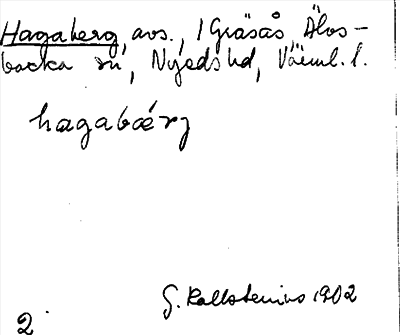 Hagaberg, avs., 1 Gräsås, Älvs-
backa sn, Nyeds hd, Värml. l.
hagabærj
G. Kallstenius 1902
2